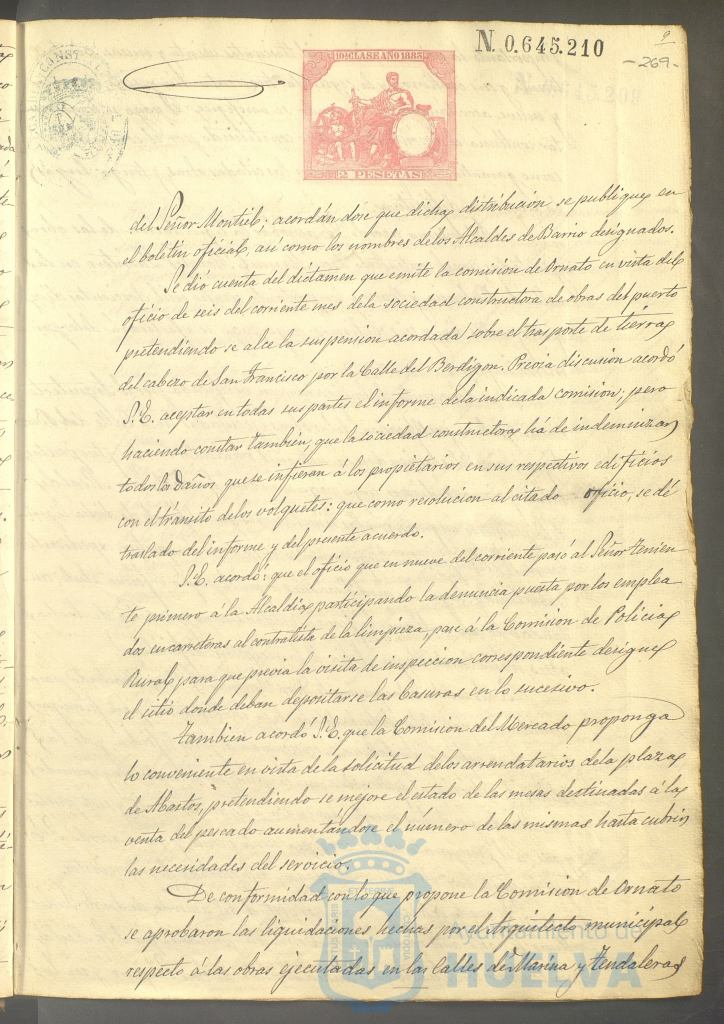 N. 0.645.210
9
-269-
10ª CLASE AÑO 1883
2 PESETAS
del Señor Montiel; acordándose que dicha distribución se publique en
el boletin oficial, asi como los nombres delos Alcaldes de Barrio designados.
Se dió cuenta del dictamen que emite la comision de Ornato en vista del
oficio de seis del corriente mes dela sociedad constructora de obras del puerto
pretendiendo se alce la suspension acordada sobre el trasporte de tierras
del cabezo de San Francisco por la Calle del Berdigon. Previa discusion acordó
S.E. aceptar en todas sus partes el informe dela indicada comision; pero
haciendo constar tambien, que la sociedad constructora há de indemnizar
todos los daños que se infieran á los propietarios en sus respectivos edificios
con el tránsito delos volquetes: que como resolucion al citado oficio, se dé
traslado del informe y del presente acuerdo.
S.E. acordó: que el oficio que en nueve del corriente pasó al Señor Tenien
te primero á la Alcaldia participando la denuncia puesta por los emplea
dos en carreteras al contratista de la limpieza, pase á la Comision de Policia
Rural para que previa la visita de inspeccion correspondiente designe
el sitio donde deban depositarse las basuras en lo sucesivo.
Tambien acordó S.E. que la Comision del Mercado proponga
lo conveniente en vista de la solicitud delos arrendatarios dela plaza
de Abastos, pretendiendo se mejore el estado de las mesas destinadas á la
venta del pescado aumentándose el número de las mismas hasta cubrir
las necesidades del servicio.
De conformidad con lo que propone la Comision de Ornato
se aprobaron las liquidaciones hechas por el Arquitecto municipal
respecto á las obras ejecutadas en las Calles de Marina y Tendaleras
Ayuntamiento de
HUELVA